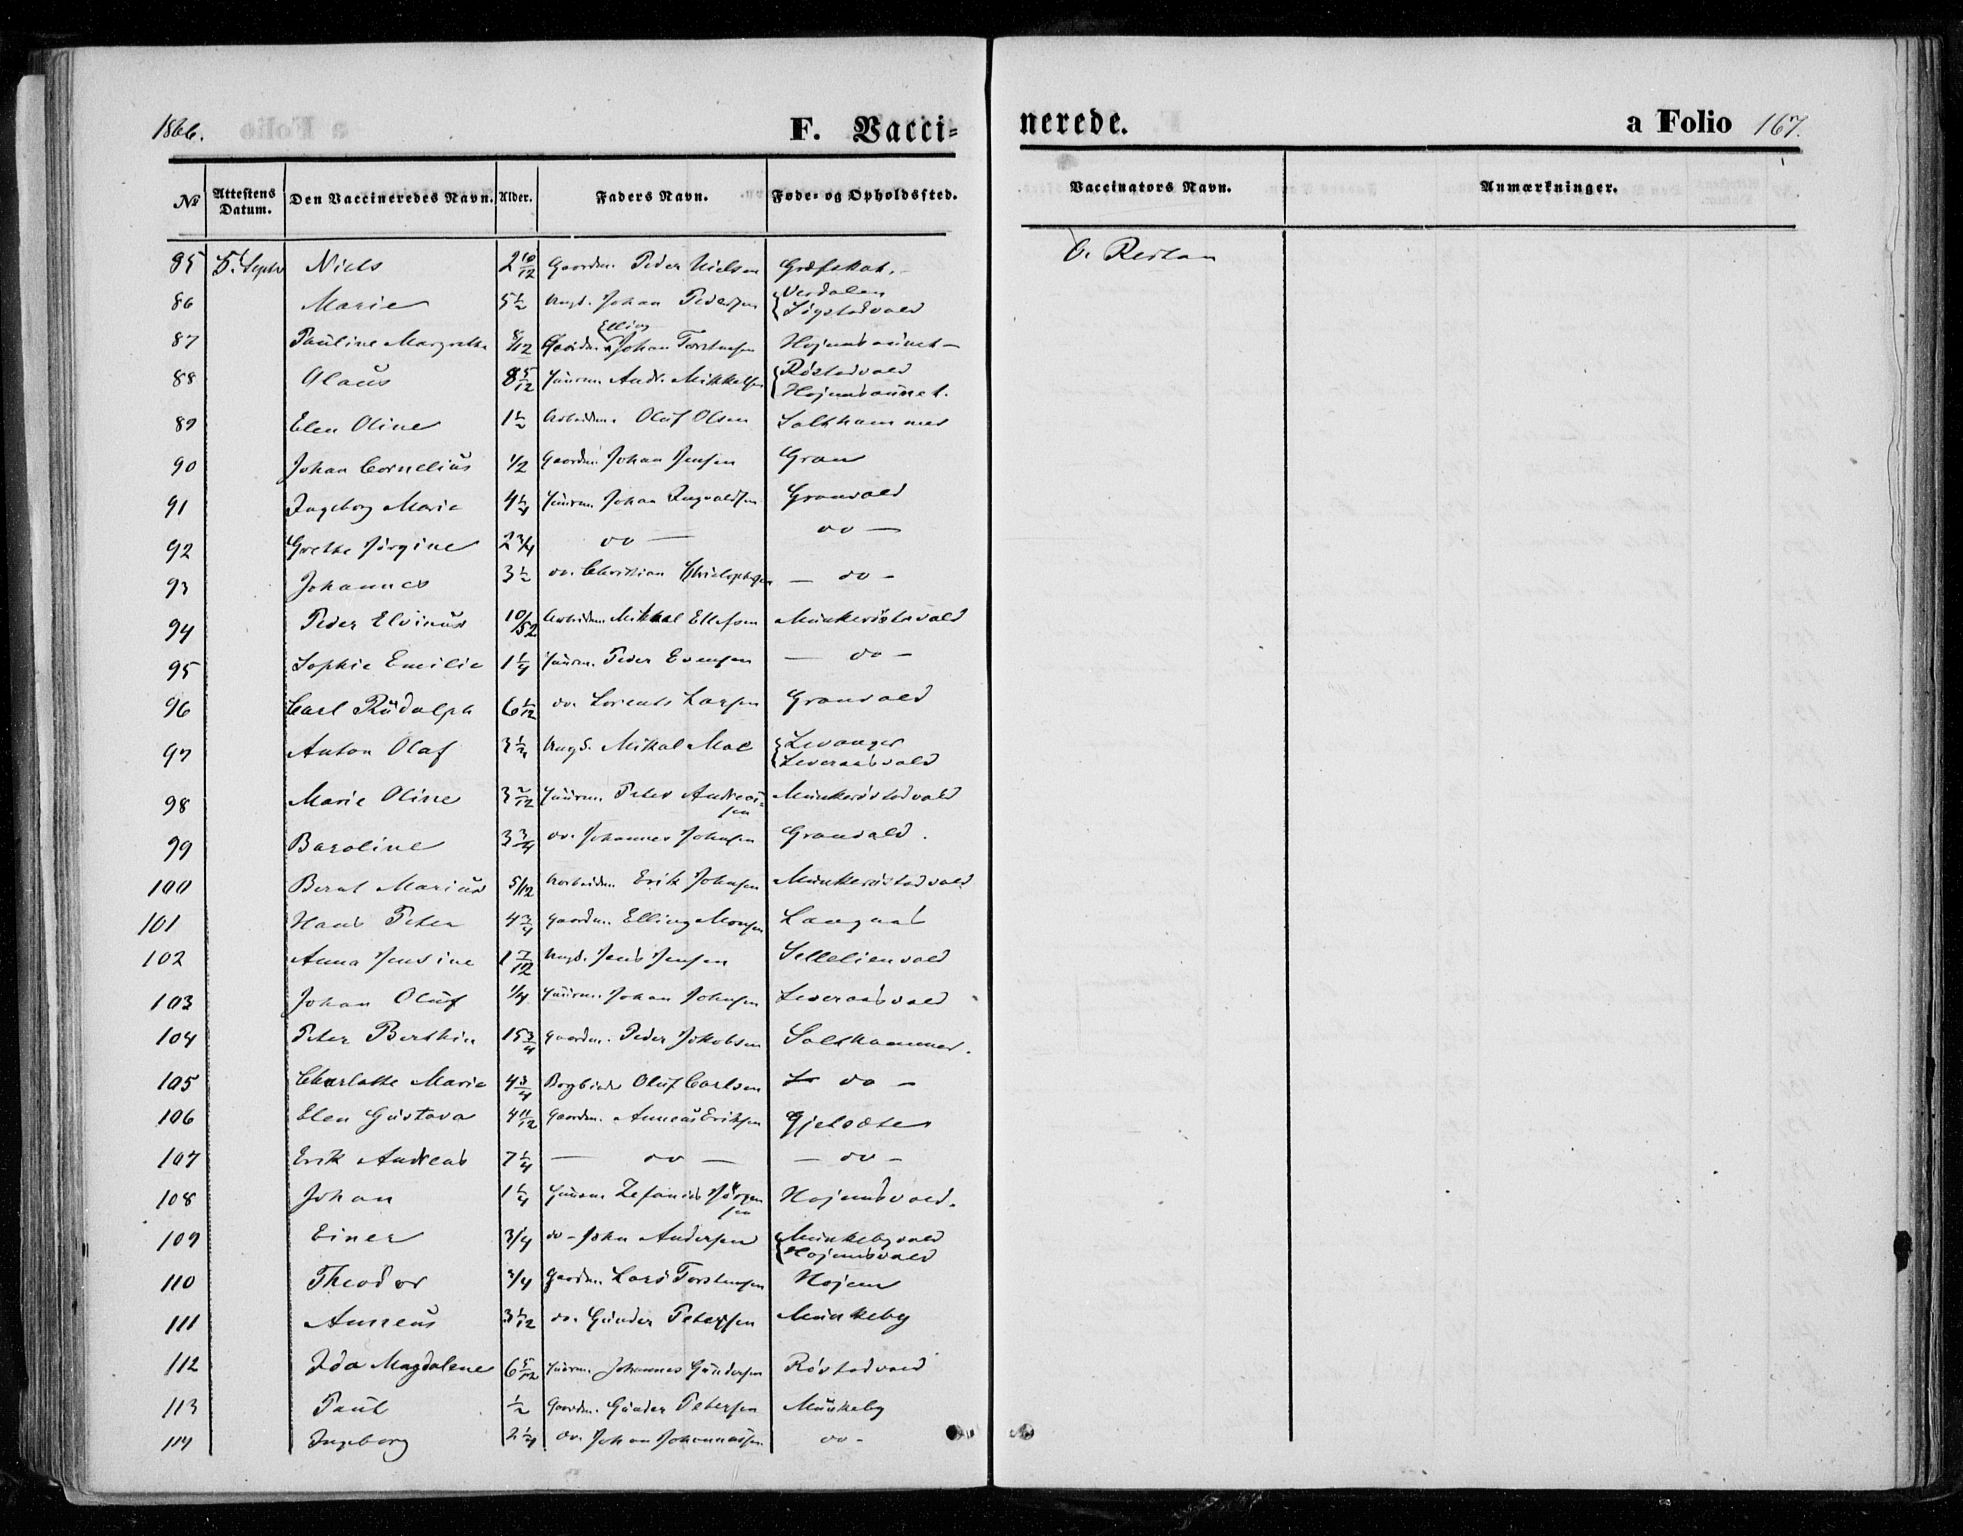 1866. F. Vacci= nerede. a Folio 167.
No Attestens Datum. Den Vaccineredes Navn. Alder. Faders Navn. Føde- og Opholdssted. Vaccinators Navn. Anmærkninger.
85 5 Septr Niels 2 10/12 Gaardm. Peder Nielsen O. Reitan
86 Marie 5 1/2 Ungk. Johan Pedersen Verdalen
87 Pauline Margrethe 8/12 Gaardm. Elling Johan Torstensen Hojemsaunet
88 Olaus 8 5/12 Huusm. Andr. Mikkelsen Røstadvald
Hojemsaunet.
89 Elen Oline 1 1/2 Arbeidsm. Oluf Olsen Salthammer
90 Johan Cornelius 1/2 Gaardm. Johan Jensen Gran
91 Ingeborg Marie 4 1/4 Huusm. Johan Ingvaldsen Granvald
92 Grethe Jørgine 2 3/4 do — do —
93 Johannes 3 1/2 do. Christian Christophersen — do -
94 Peder Elvinus 10/52 Arbeidsm. Mikkal Ellefsen Munkerøstadvald
95 Sophie Emilie 1 1/4 Huusm. Peder Evensen — do -
96 Carl Rudolph 6 1/12 do. Lorents Larsen Granvald
97 Anton Olaf 3 1/4 Ungk. Mikal Moe Levanger
Leveraasvald
98 Marie Oline 3 2/12 Huusm. Peter Andreas=
sen Munkerøstadvald
99 Baroline 3 3/4 do. Johannes Johnsen Granvald.
100 Bernt Marius 5/12 Arbeidsm. Erik Johnsen Munkerøstadvald
101 Hans Peter 4 3/4 Gaardm. Elling Monsen Langnæs
102 Anna Jensine 1 7/12 Ungk. Jens Jensen Sellelienvald
103 Johan Oluf 1/4 Huusm. Johan Johnsen Leveraasvald
104 Peter Berthin 15 3/4 Gaardm. Peder Jakobsen Salthammer.
105 Charlotte Marie 4 3/4 Oluf Carlsen do -
106 Elen Gustava 4 11/12 Gaardm. Anneus Eriksen Gjelsæter
107 Erik Andreas 7 1/4 — do — — do -
108 Johan 1 1/4 Huusm. Zefanias Jørgen
sen Hojemsvald.
109 Einer 3/4 do - John Andersen Munkebyvald
Hojemsvald
110 Theodor 3/4 Gaardm. Lars Torstensen Hojem
111 Anneus 3 1/12 do. Gunder Petersen Munkeby
112 Ida Magdalene 6 5/12 Huusm. Johannes Gundersen Røstadvald
113 Paul 1/2 Gaardm. Gunder Petersen Munkeby
114 Ingeborg 2 1/4 do. Johan Johannessen do -